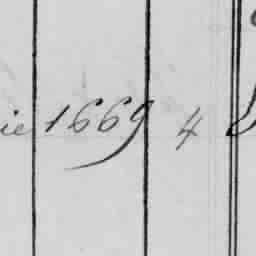 ie 1669 4